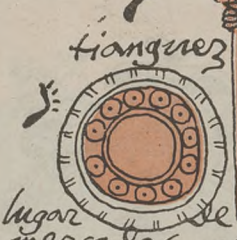 tianguez
lugar de